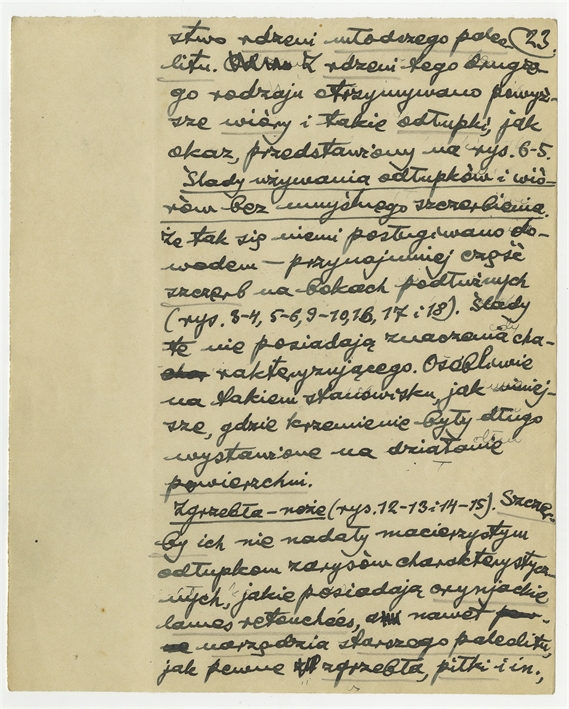 stwo rdzeni młodszego paleo 23.
litu. Z rdzeni tego drugie-
go rodzaju otrzymywano powyż-
sze wióry i takie odłupki, jak
okaz, przedstawiony na rys. 6-5.
Ślady używania odłupków i wió-
rów bez umyślnego szczerbienia.
Że tak się niemi posługiwano do-
wodem – przynajmniej część
szczerb na bokach podłużnych
(rys. 3-4, 5-6, 9-10, 16, 17 i 18). Ślady
te nie posiadają znaczenia cha-
rakteryzującego. Osobliwie
na takiem stanowisku, jak niniej-
sze, gdzie krzemienie były długo
wystawione na działanie
powierzchni.
Zgrzebła – noże (rys. 12-13 i 14-15). Szczer-
by ich nie nadały macierzystym
odłupkom zarysów charakterystycz-
nych, jakie posiadają orynjackie
lames retouchées, nawet
narzędzia starszego paleolitu,
jak pewne zgrzebła, piłki i in.,